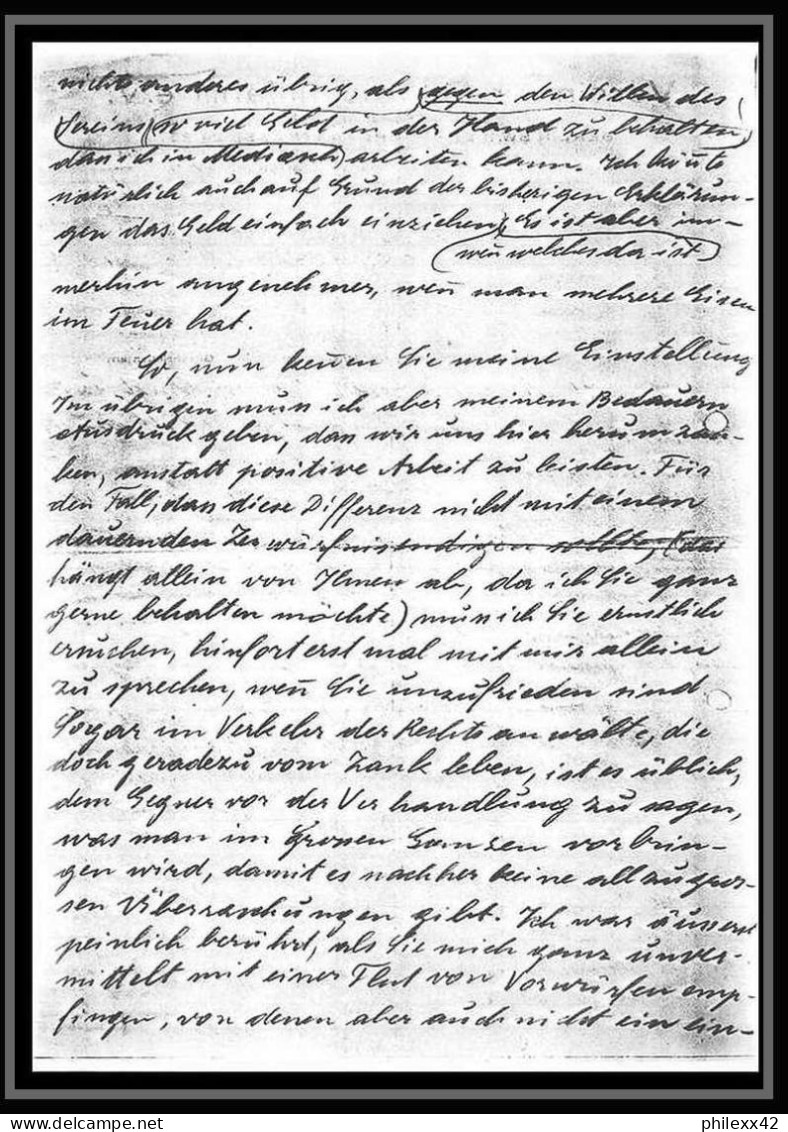 nichts anderes übrig, als (gegen den Willen des
Vereins) (so viel Geld in der Hand zu behalten,
dass ich in Mediasch) arbeiten kann. Ich könnte
natürlich auch auf Grund der bisherigen Erklärun-
gen das Geld einfach einziehen, Es ist aber im-
(wen̄ welches da ist)
merhin angenehmer, wen̄ man mehrere Eisen
im Feuer hat.
So, nun ken̄en Sie meine Einstellung
Im übrigen muss ich aber meinem Bedauern
Ausdruck geben, dass wir uns hier herumzan-
ken, anstatt positive Arbeit zu leisten. Für
den Fall, dass diese Differenz nicht mit einem
dauernden Zerwürfnis endigen sollte, (das
hängt allein von Ihnen ab, da ich Sie ganz
gerne behalten möchte) muss ich Sie ernstlich
ersuchen, hinfort erst mal mit mir allein
zu sprechen, wen̄ Sie unzufrieden sind
Sogar im Verkehr der Rechtsanwälte, die
doch geradezu vom Zank leben, ist es üblich,
dem Gegner vor der Verhandlung zu sagen,
was man im Grossen Ganzen vorbrin-
gen wird, damit es nachher keine allzugros-
sen Überraschungen gibt. Ich war äusserst
peinlich berührt, als Sie mich ganz unver-
mittelt mit einer Flut von Vorwürfen emp-
fingen, von denen aber auch nicht ein ein-
philexx42
delcampe.net